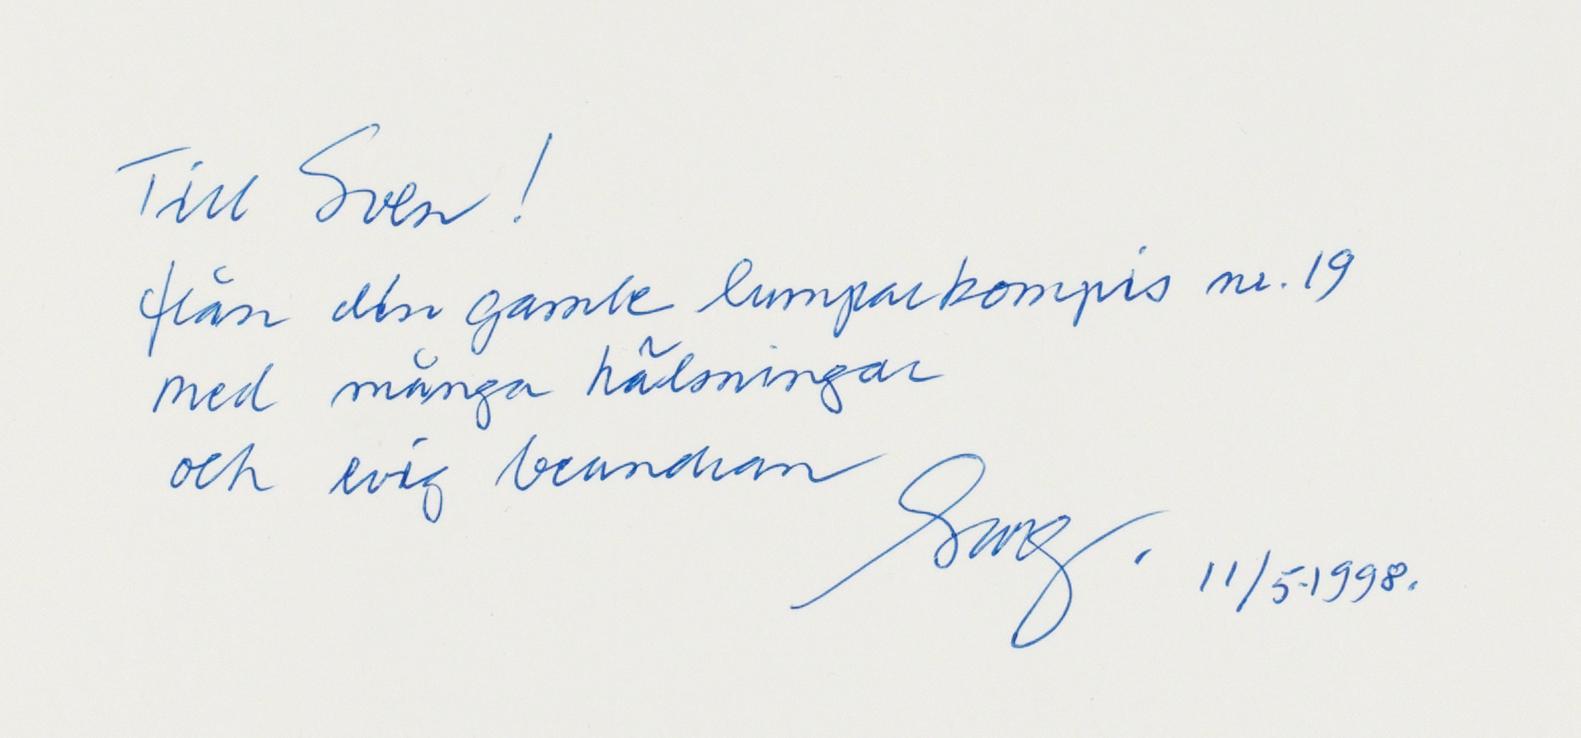 Till Sven!
från din gamle lumparkompis nr. 19
med många hälsningar
och evig beundran
11/5-1998.